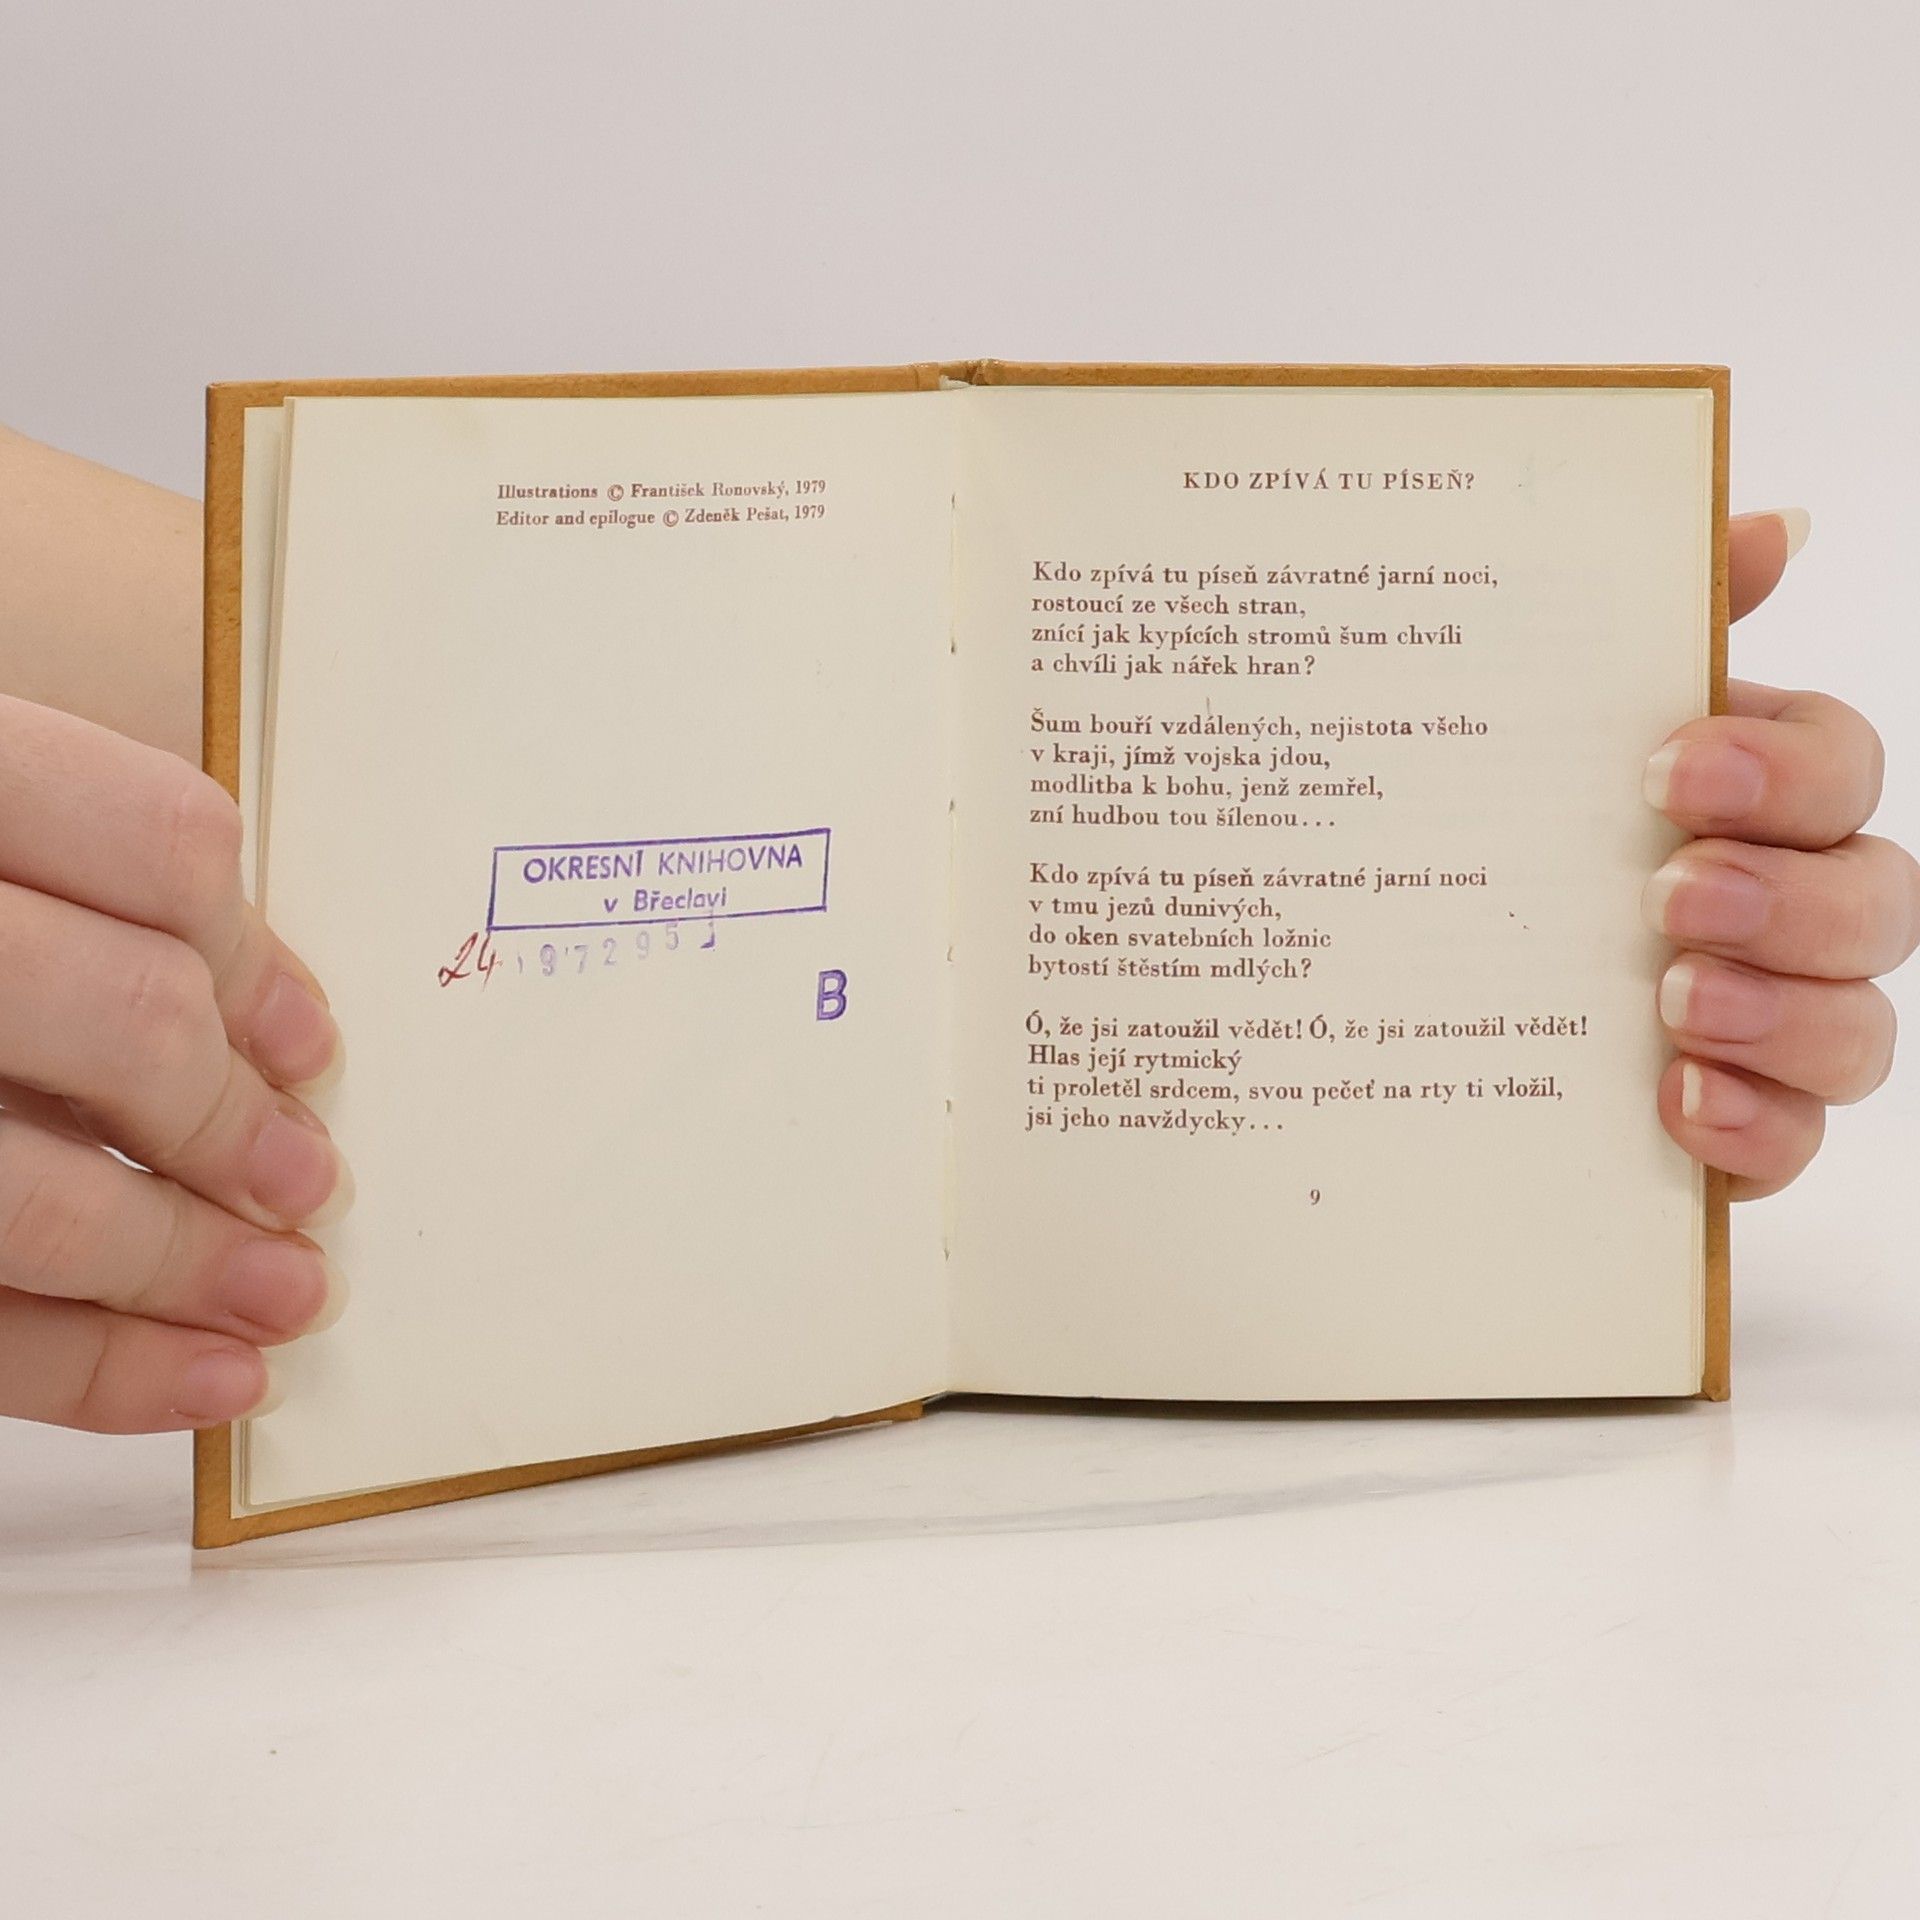 Illustrations © František Ronovský, 1979
Editor and epilogue © Zdeněk Pešat, 1979
OKRESNÍ KNIHOVNA
v Břeclavi
24
B
KDO ZPÍVÁ TU PÍSEŇ?
Kdo zpívá tu píseň závratné jarní noci,
rostoucí ze všech stran,
znící jak kypících stromů šum chvíli
a chvíli jak nářek hran?
Šum bouří vzdálených, nejistota všeho
v kraji, jímž vojska jdou,
modlitba k bohu, jenž zemřel,
zní hudbou tou šílenou...
Kdo zpívá tu píseň závratné jarní noci
v tmu jezů dunivých,
do oken svatebních ložnic
bytostí štěstím mdlých?
Ó, že jsi zatoužil vědět! Ó, že jsi zatoužil vědět!
Hlas její rytmický
ti proletěl srdcem, svou pečeť na rty ti vložil,
jsi jeho navždycky...
9